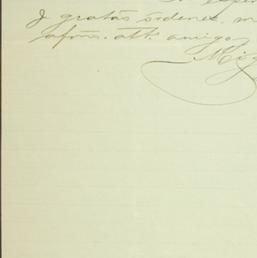 espe
y gratas ordenes. m
afmo. atto. amigo
Mig